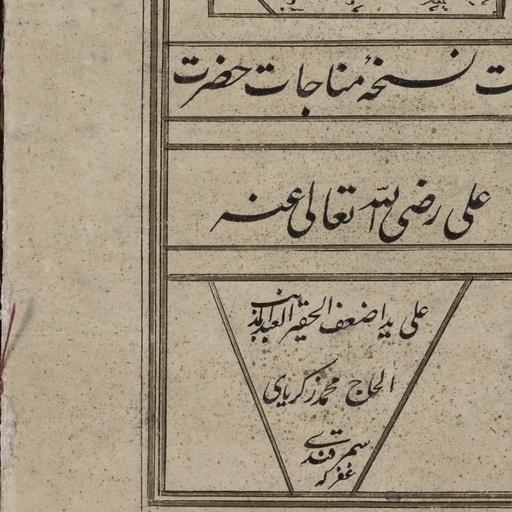 ت نسخهٔ مناجات حضرت
علی رضی الله تعالی عنه
علی ید اضعف الحقیر العبد المذنب
الحاج محمد زکریای
سمرقندی
غفر له